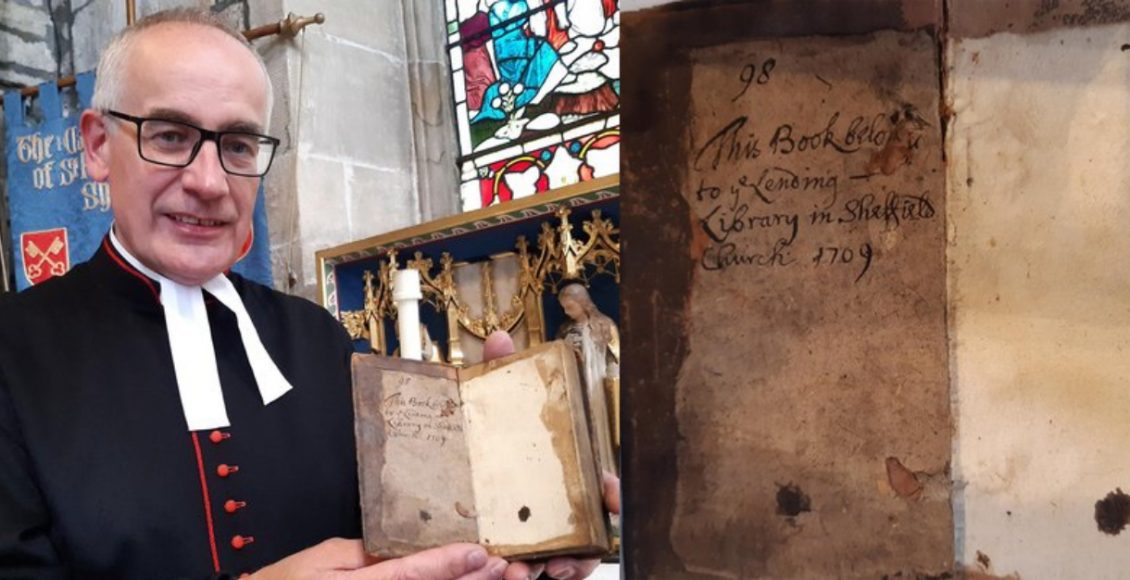 The
of
98
This Book
to ye Lending
Library in Sheffield
Church 1709
98
This Book
to ye Lending —
Library in Sheffield
Church 1709